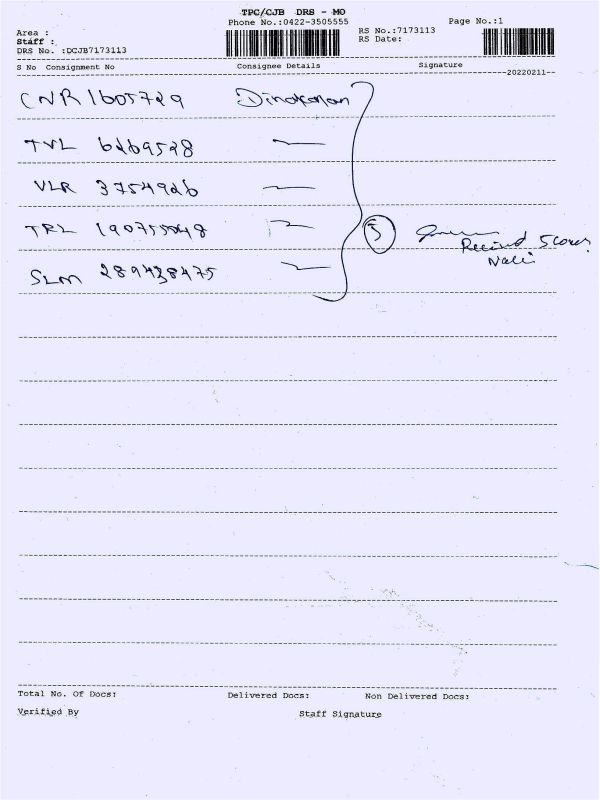 TPC/CJB DRS - MO
Phone No.:0422-3505555
Page No.:1
Area :
Staff :
DRS No. :DCJB7173113
RS No.:7173113
RS Date:
S No Consignment No Consignee Details Signature
20220211
CNR 1605729 Dinakaran
TVL 6269528
VLR 3754926
TRL
SLM
5
Received
Total No. Of Docs: Delivered Docs: Non Delivered Docs:
Verified By Staff Signature